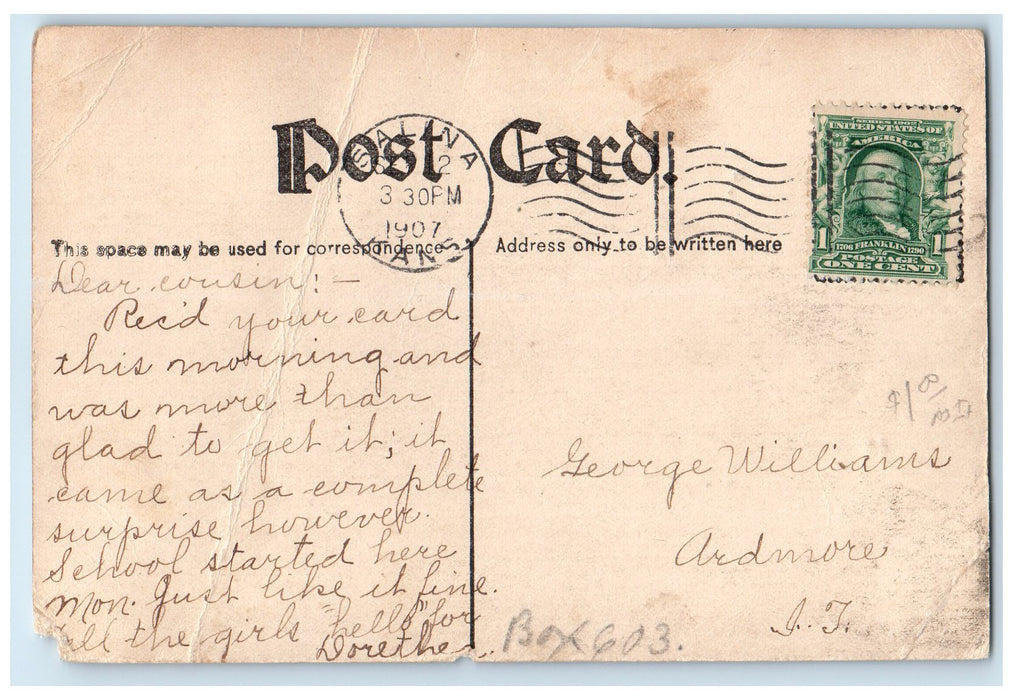 Post Card.
SALINA
2
3 30PM
1907
KANS
SERIES 1902
UNITED STATES OF
AMERICA
1 1706 FRANKLIN 1790 1
POSTAGE
ONE CENT
This space may be used for correspondence
Address only to be written here
Dear cousin:-
Rec'd your card
this morning and
was more than
glad to get it; it
came as a complete
surprise however.
School started here
Mon. Just like it fine.
the girls "hello" for
Dorethe
George Williams
Ardmore
I.T.
Box 603.